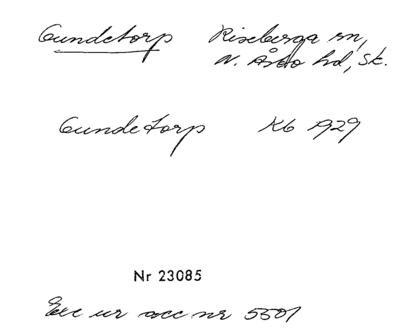 Gundetorp Riseberga sn,
N. Åsbo hd, Sk.
Gundetorp Kb 1929
Nr 23085
Exc ur acc nr 5501